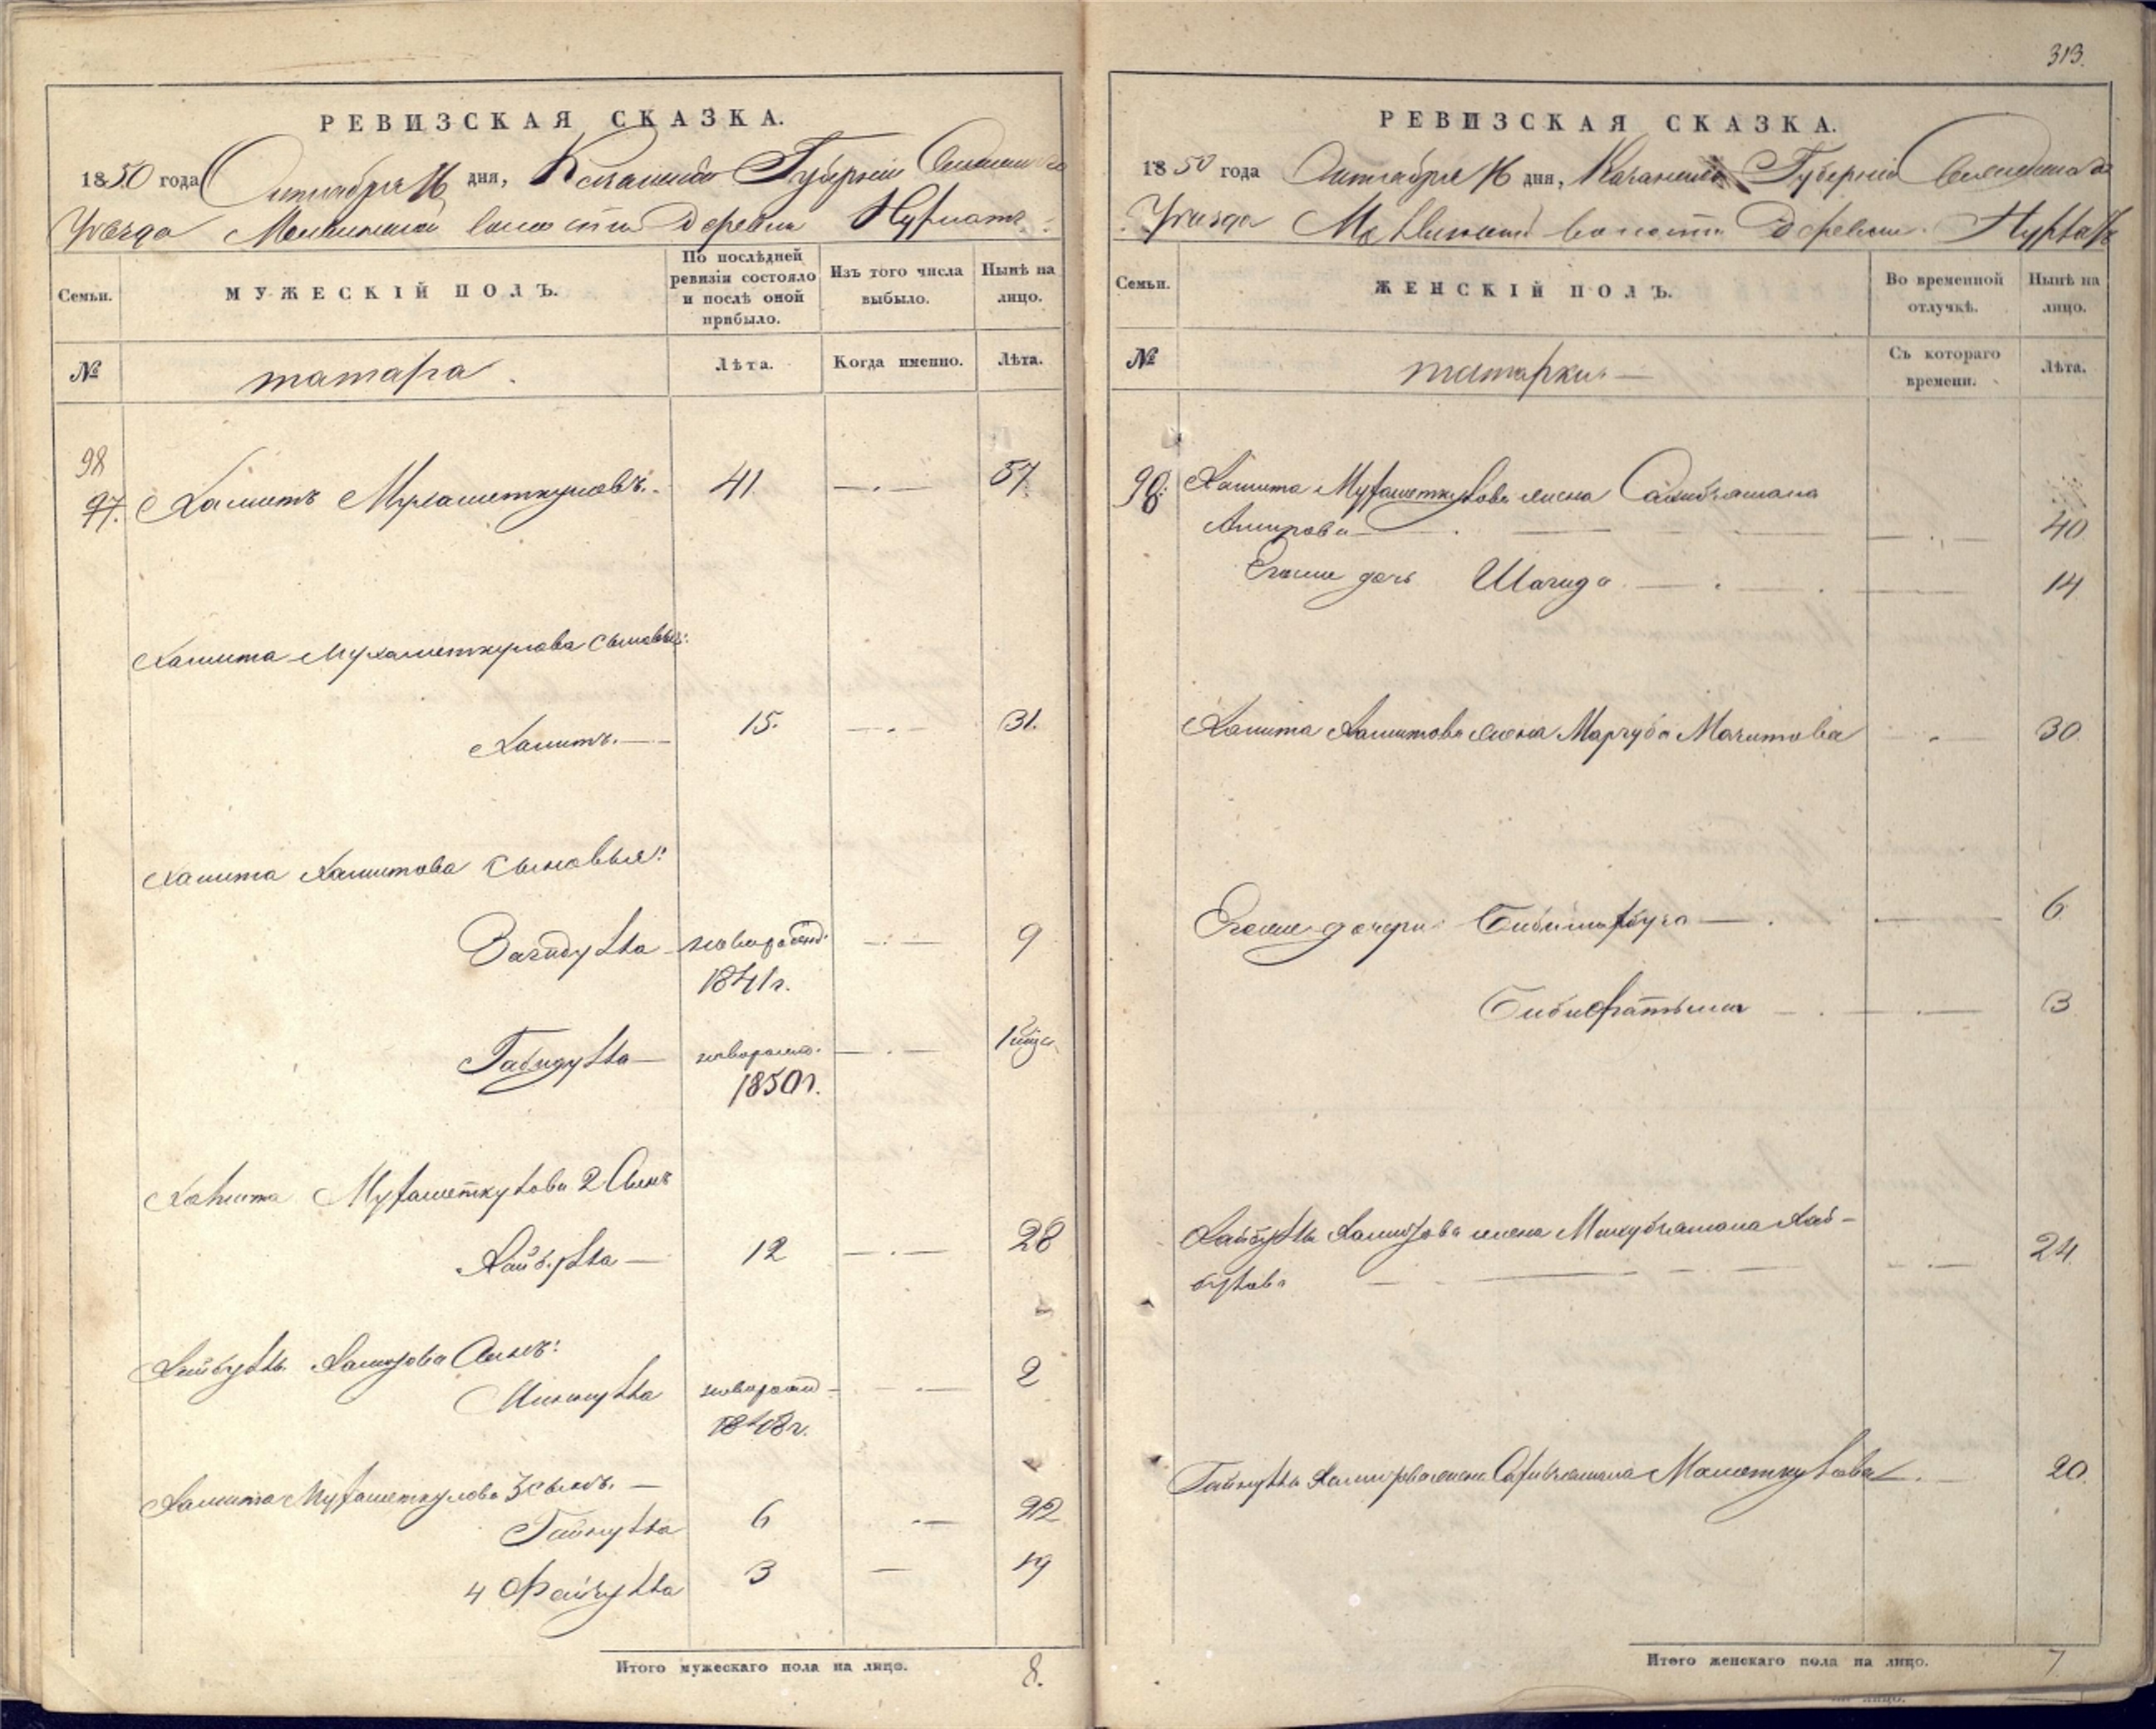 РЕВИЗСКАЯ СКАЗКА.
1850 года Октября 16 дня, Казанской Губернии
Уезда волости Деревни Нурлатъ
Семьи.
МУЖЕСКІЙ ПОЛЪ.
По послѣдней ревизіи состояло и послѣ оной прибыло.
Изъ того числа выбыло.
Нынѣ на лицо.
№
татара
Лѣта.
Когда именно.
Лѣта.
98
97. Хамитъ Мухаметкуловъ. 41 57
Хамита Мухаметкулова сыновья:
Хамитъ. 15. 31.
Хамита Хамитова сыновья:
Загидулла новорожд. 9
1841 г.
Габидулла новорожд.
1850 г.
Хамита Мухаметкулова 2 Сынъ
Хайбулла 12 28
Хайбуллы Хамитова Сынъ:
Миннулла новорожд 2
1848 г.
Хамита Мухаметкулова 3 сынъ.
Гайнулла 6 22
4 3 19
Итого мужескаго пола на лицо. 8.
313.
РЕВИЗСКАЯ СКАЗКА.
1850 года Октября 16 дня, Казанской Губерніи
Уезда волости Деревни Нурлатъ
Семьи.
ЖЕНСКІЙ ПОЛЪ.
Во временной отлучкѣ.
Нынѣ на лицо.
№
татарки
Съ котораго времени.
Лѣта.
98. Хамита Мухаметкулова жена
Амирова 40
Егоже дочь Шагида 14
Хамита Хамитова жена Маргуба 30
Егоже дочери 6
Бибифатыма 3
Хайбуллы Хамитова жена Хай-
булова 24.
Гайнуллы Хамитова жена Маметкулова 20.
Итого женскаго пола на лицо. 7